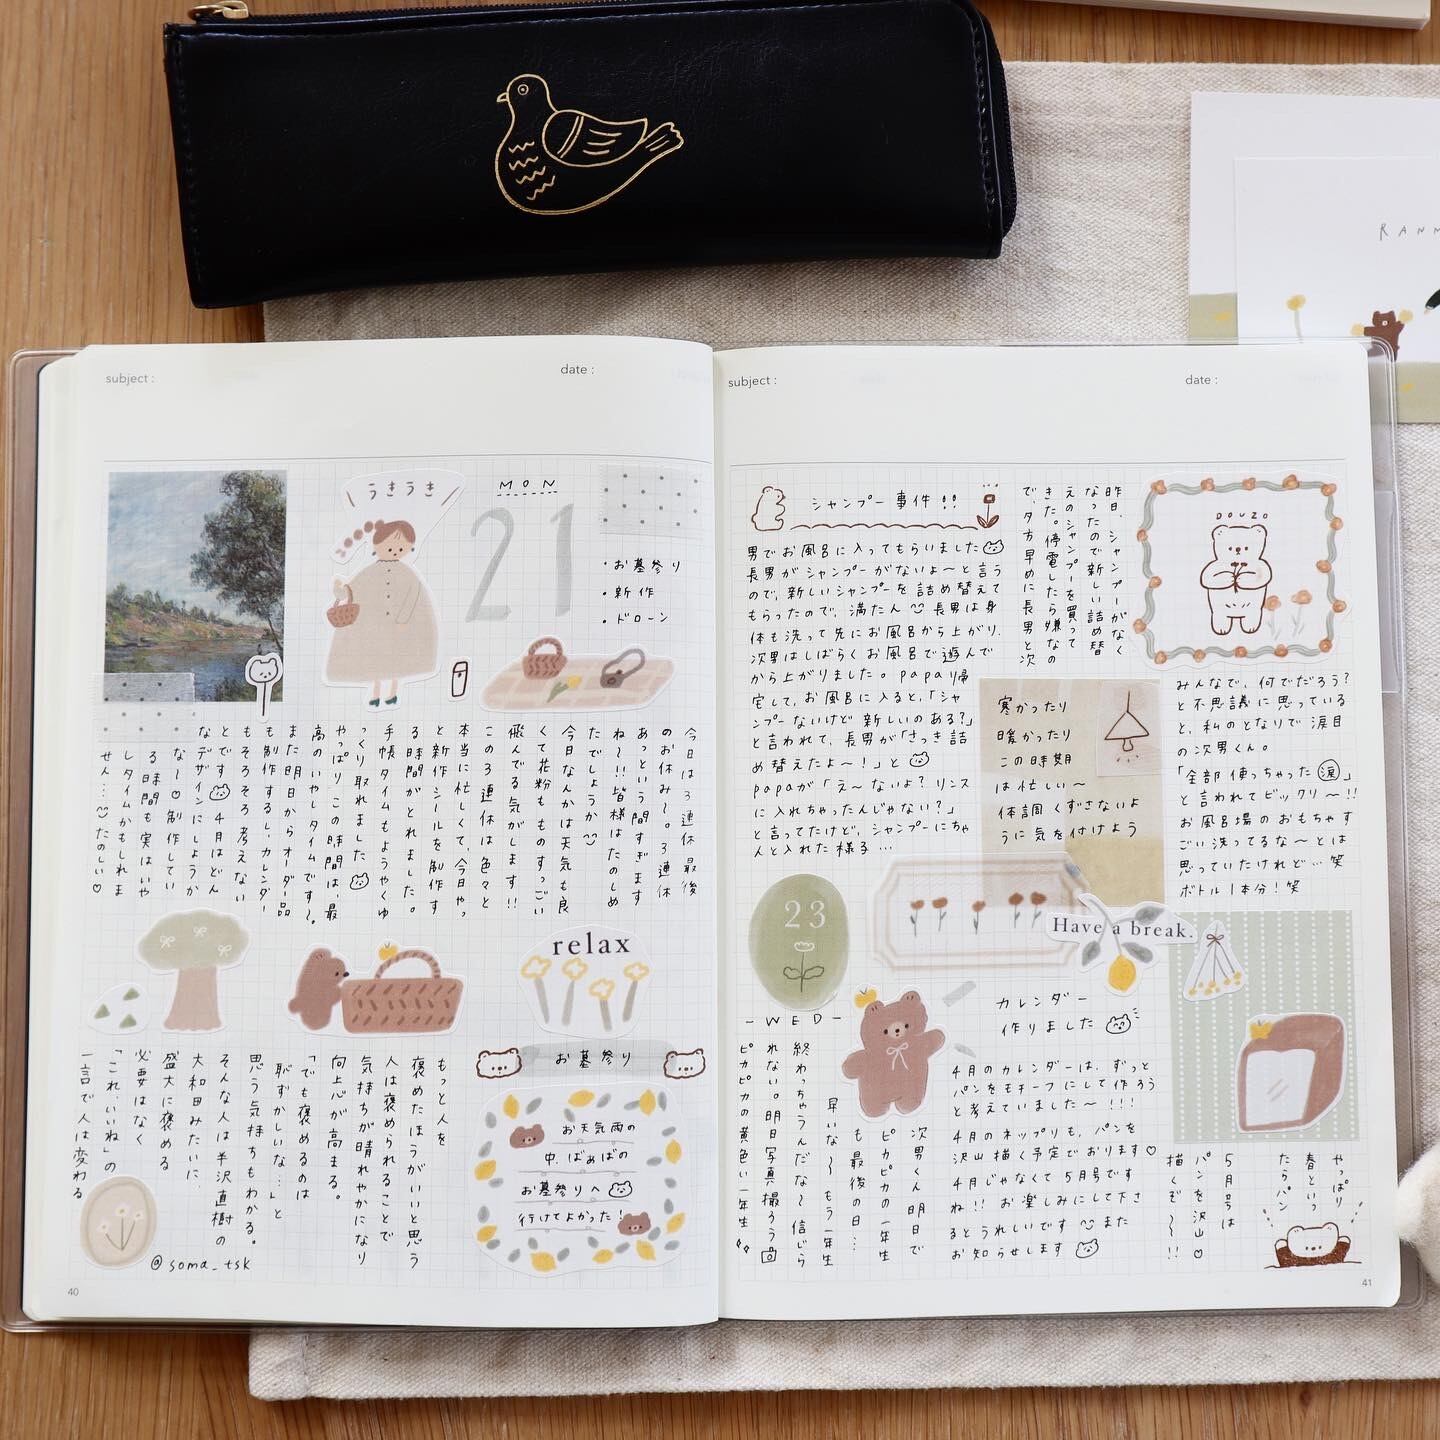 RANM
subject :
date :
うきうき
MON
21
・お墓参り
・新作
・ドローン
今日は3連休最後
のお休み〜。3連休
あっという間すぎます
ね〜!!皆様はたのしめ
たでしょうか
今日なんかは天気も良
くて花粉ものすっごい
飛んでる気がします!!
この3連休は色々と
本当に忙しくて、今日やっ
と新作シールを制作す
る時間がとれました。
手帳タイムもようやくゆ
っくり取れました
やっぱりこの時間は、最
高のいやしタイムです〜。
また明日からオーダー品
も制作するし、カレンダー
もそろそろ考えない
とです 4月はどん
なデザインにしようか
な〜♡制作してい
る時間も実はいや
しタイムかもしれま
せん…たのしい♡
relax
お墓参り
お天気雨の
中、ばぁばの
お墓参りへ
行けてよかった!
もっと人を
褒めたほうがいいと思う
人は褒められることで
気持ちが晴れやかになり
向上心が高まる。
「でも褒めるのは
恥ずかしいな…」と
思う気持ちもわかる。
そんな人は半沢直樹の
大和田みたいに、
盛大に褒める
必要はなく
「これ、いいね」の
一言で人は変わる
@soma_tsk
40
subject :
date :
シャンプー事件!!
昨日、シャンプーがなく
なったので新しい詰め替
えのシャンプーを買って
きた。停電したら嫌なの
で、夕方早めに長男と次
男でお風呂に入ってもらいました
長男がシャンプーがないよ〜と言う
ので、新しいシャンプーを詰め替えて
もらったので、満たん 長男は身
体も洗って先にお風呂から上がり、
次男はしばらくお風呂で遊んで
から上がりました。papa帰
宅して、お風呂に入ると、「シャ
ンプーないけど新しいのある?」
と言われて、長男が「さっき詰
め替えたよ〜!」と
papaが「え〜ないよ?リンス
に入れちゃったんじゃない?」
と言ってたけど、シャンプーにちゃ
んと入れた様子…
DOUZO
みんなで、何でだろう?
と不思議に思っている
と、私のとなりで涙目
の次男くん。
「全部使っちゃった涙」
と言われてビックリ〜!!
お風呂場のおもちゃす
ごい洗ってるな〜とは
思っていたけれど…笑
ボトル1本分!笑
寒かったり
暖かったり
この時期
は忙しい〜
体調くずさないよ
うに気を付けよう
23
Have a break.
-WED-
次男くん明日で
ピカピカの一年生
も最後の日…
早いな〜もう一年生
終わっちゃうんだな〜信じら
れない。明日写真撮ろう
ピカピカの黄色い一年生
カレンダー
作りました
4月のカレンダーは、ずっと
パンをモチーフにして作ろう
と考えていました〜!!!
4月のネップリも、パンを
沢山描く予定でおります♡
4月じゃなくて5月号です
ね!!お楽しみにして下さ
るとうれしいです また
お知らせします
やっぱり
春といっ
たらパン
5月号は
パンを沢山♡
描くぞ〜!!
41